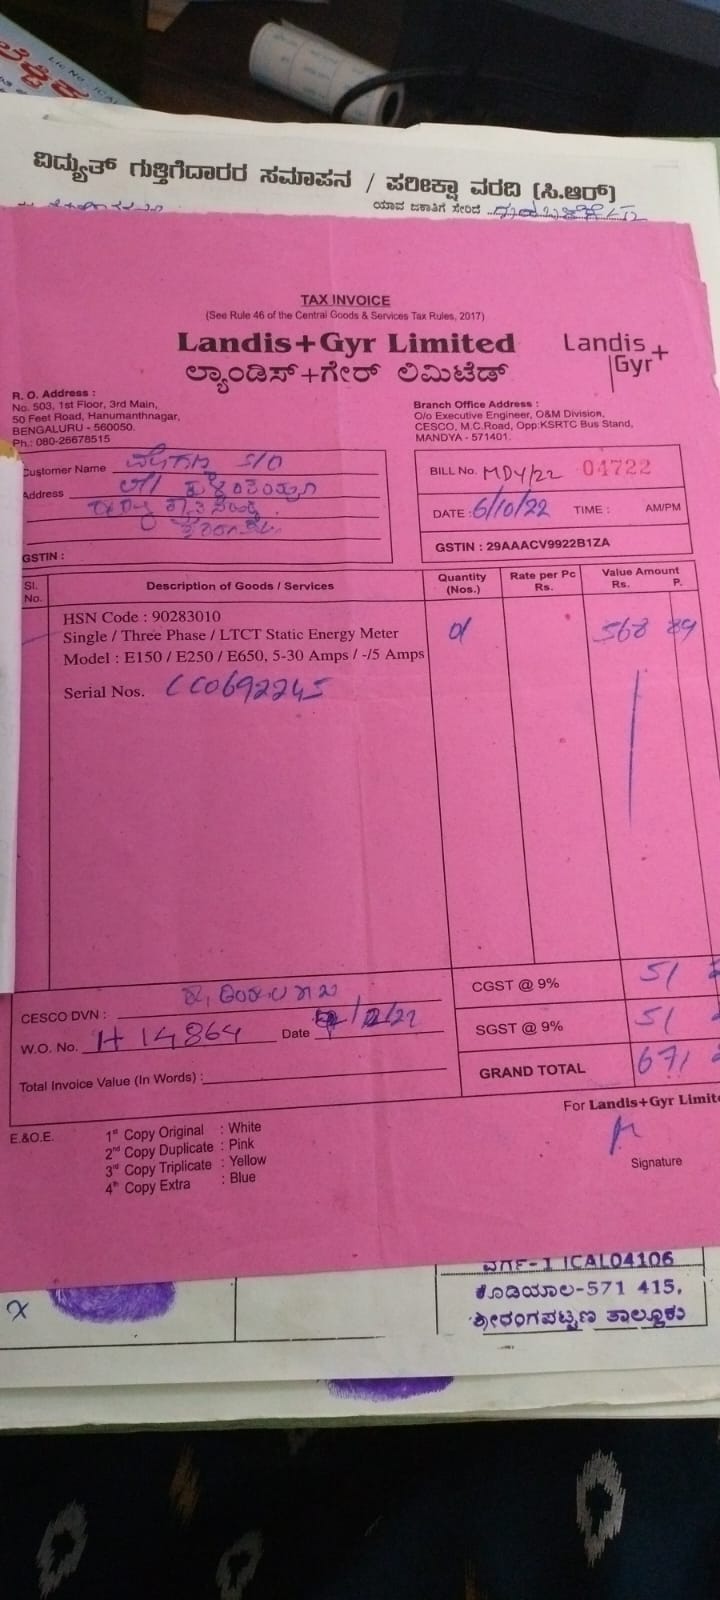 Lic No. ICAL
ವಿದ್ಯುತ್ ಗುತ್ತಿಗೆದಾರರ ಸಮಾಪನ / ಪರೀಕ್ಷಾ ವರದಿ (ಸಿ.ಆರ್)
ಯಾವ ಜಕಾತಿಗೆ ಸೇರಿದೆ
TAX INVOICE
(See Rule 46 of the Central Goods & Services Tax Rules, 2017)
Landis+Gyr Limited
Landis+
Gyr
ಲ್ಯಾಂಡಿಸ್+ಗೇರ್ ಲಿಮಿಟೆಡ್
R. O. Address :
No. 503, 1st Floor, 3rd Main,
50 Feet Road, Hanumanthnagar,
BENGALURU - 560050.
Ph.: 080-26678515
Branch Office Address :
O/o Executive Engineer, O&M Division,
CESCO, M.C.Road, Opp:KSRTC Bus Stand,
MANDYA - 571401.
Customer Name S/O
Address
GSTIN :
BILL No. MDY/22 04722
DATE : 6/10/22 TIME : AM/PM
GSTIN : 29AAACV9922B1ZA
Sl. No. Description of Goods / Services Quantity (Nos.) Rate per Pc Rs. Value Amount Rs. P.
HSN Code : 90283010
Single / Three Phase / LTCT Static Energy Meter 01 568 89
Model : E150 / E250 / E650, 5-30 Amps / -/5 Amps
Serial Nos. CC0692245
CESCO DVN :
W.O. No. H 14864 Date
Total Invoice Value (In Words) :
CGST @ 9% 51
SGST @ 9% 51
GRAND TOTAL 671
For Landis+Gyr Limite
Signature
E.&O.E.
1st Copy Original : White
2nd Copy Duplicate : Pink
3rd Copy Triplicate : Yellow
4th Copy Extra : Blue
ವರ್ಗ-1 ICAL04106
ಕೊಡಿಯಾಲ-571 415,
ಶ್ರೀರಂಗಪಟ್ಟಣ ತಾಲ್ಲೂಕು